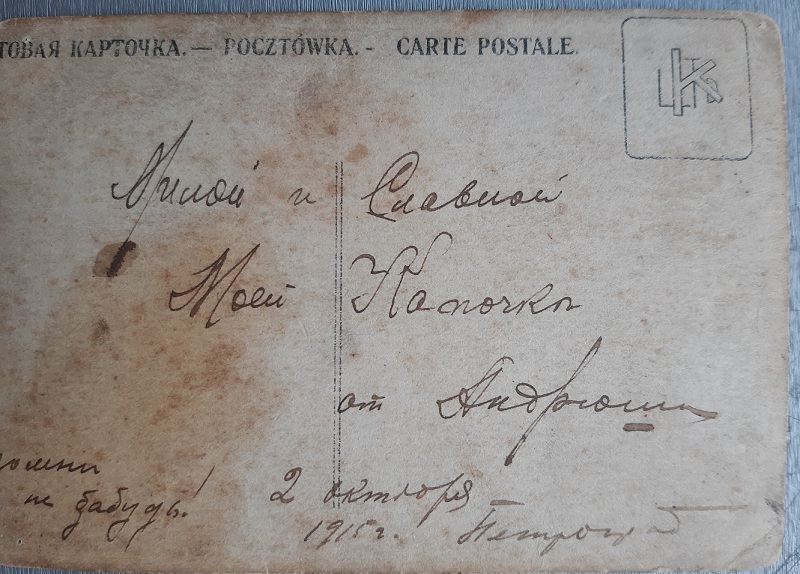 ТОВАЯ КАРТОЧКА.— POCZTÓWKA.- CARTE POSTALE.
Милой и Славной
Моей Капочкѣ
от Андрюши
помни
не забудь!
2 октября
1915 г. Петроград